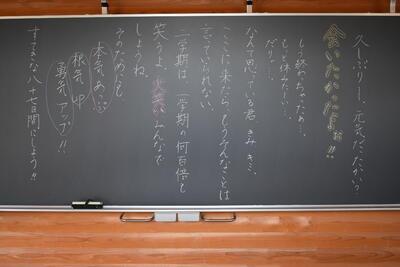 久しぶり…、元気だったか？
会いたかったよぉ!!
しく終わっちゃったあ…、
もっと休みたーい…、
だりー…、
なんて思っている君、きみ、キミ、
ここに来たら、もうそんなことは
言っていられない。
二学期は、一学期の何百倍も
笑うよ。みんなで
しようね。
そのためにも
本気
根気
勇気 アップ!!
すてきな八十七日間にしよう!!